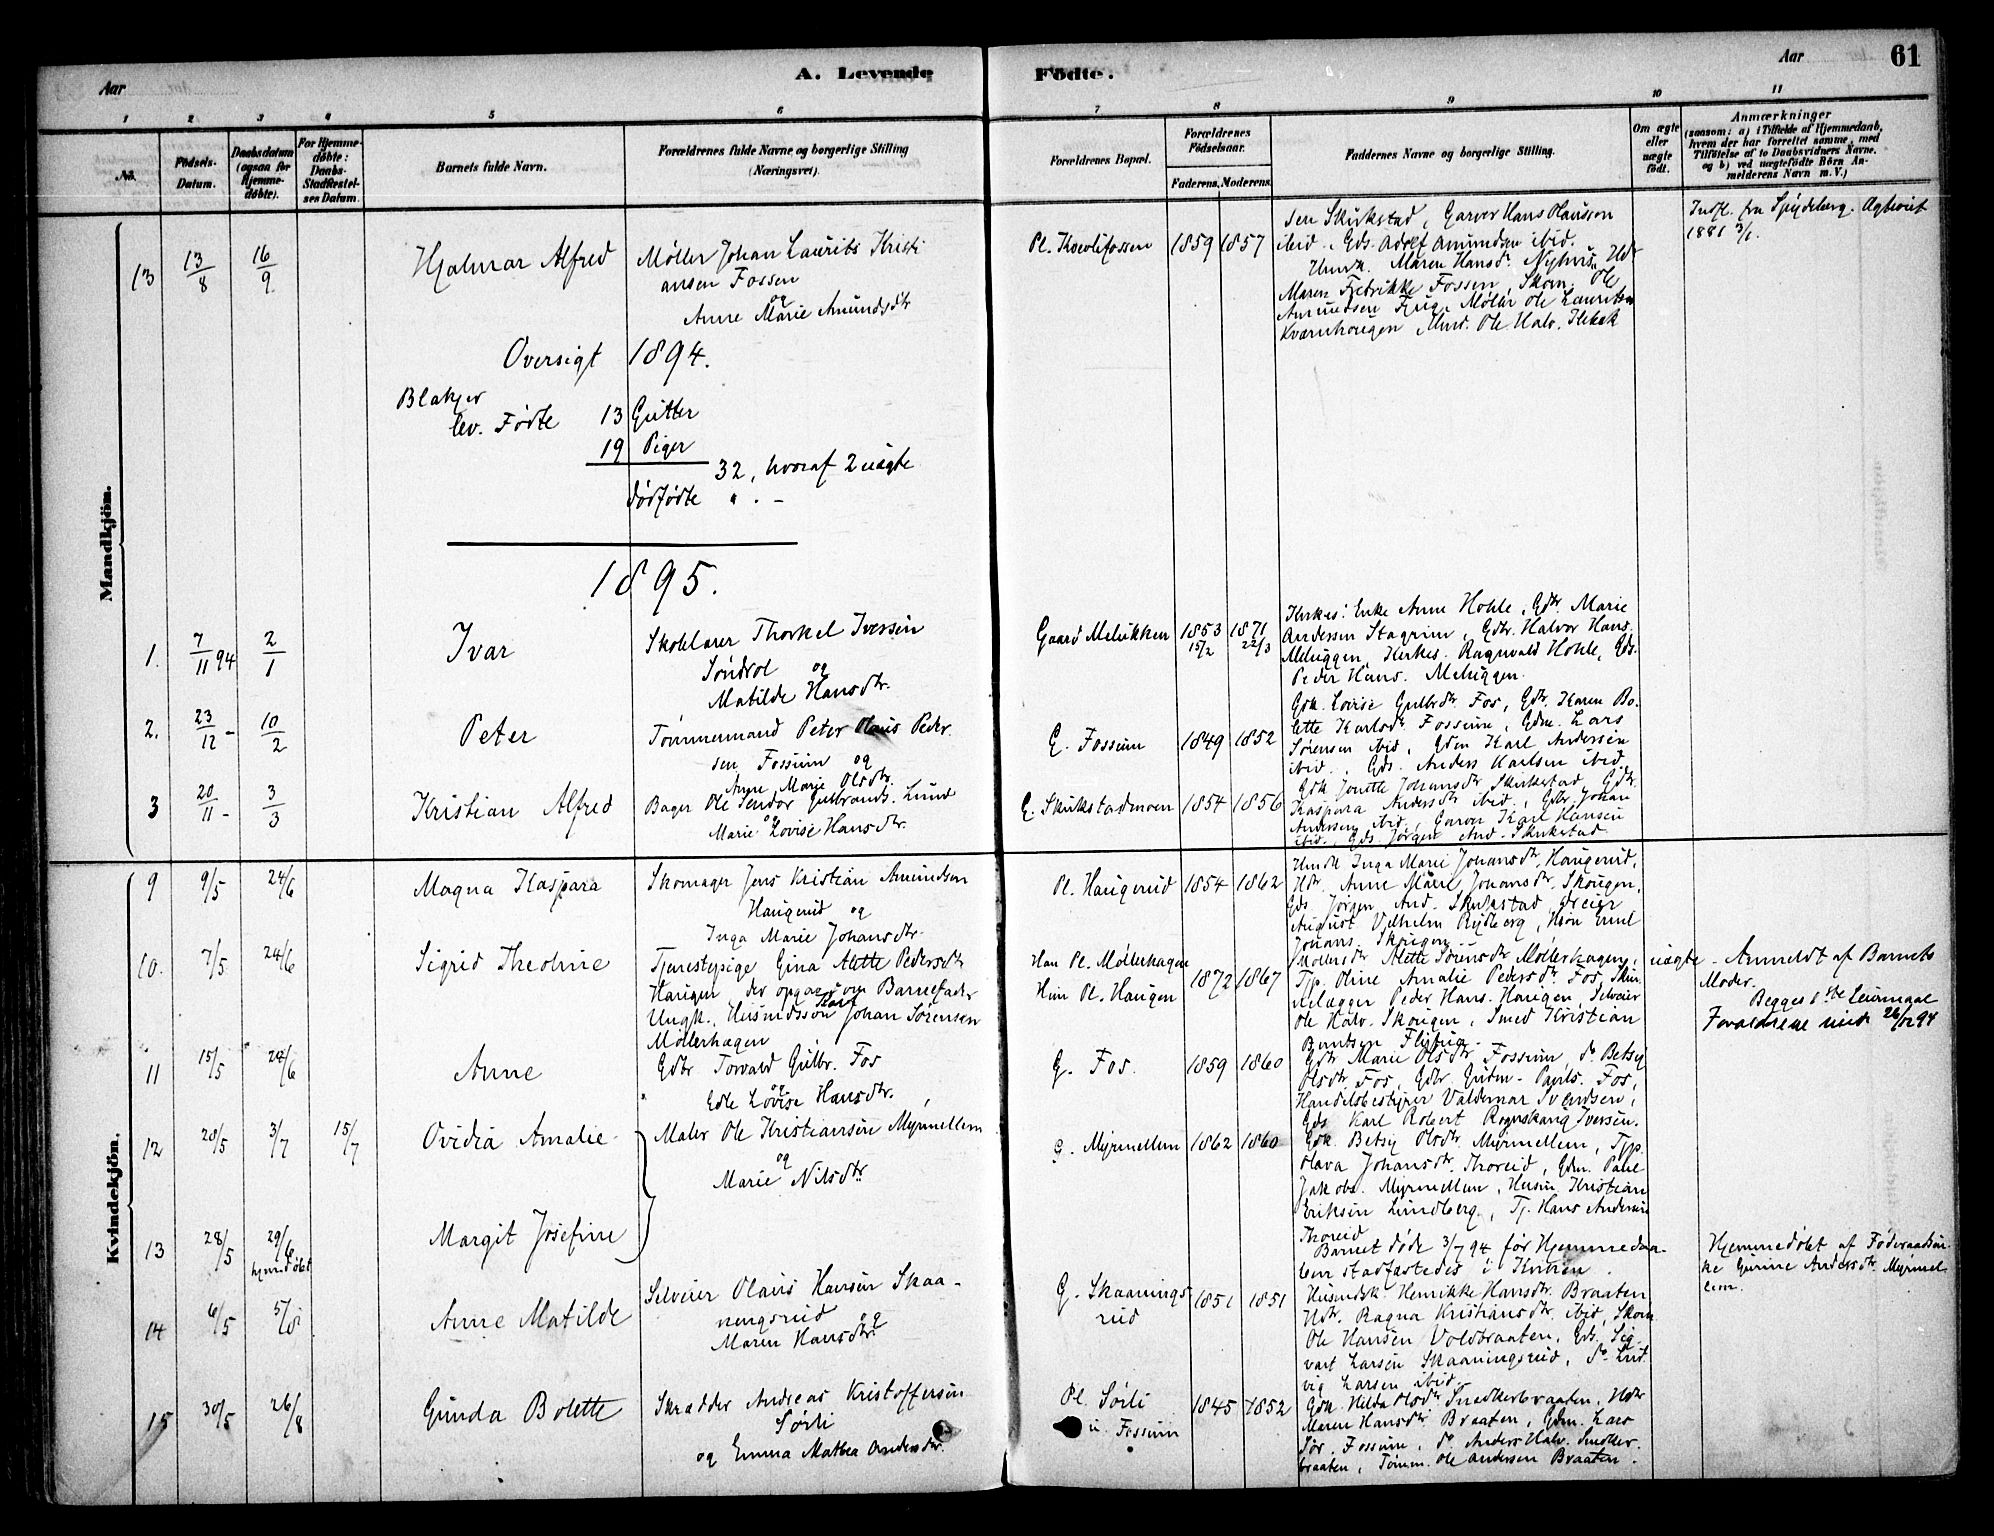 Aar
A. Levende
Födte.
Aar
61
1 2 3 4 5 6 7 8 9 10 11
No.
Födsels-
Datum.
Daabsdatum
(ogsaa for
Hjemme-
döbte).
For Hjemme-
döbte:
Daabs-
Stadfæstel-
ses Datum.
Barnets fulde Navn.
Forældrenes fulde Navne og borgerlige Stilling
(Næringsvei).
Forældrenes Bopæl.
Forældrenes
Födselsaar.
Faderens. Moderens.
Faddernes Navne og borgerlige Stilling.
Om ægte
eller
uægte
födt.
Anmærkninger
(saasom: a) i Tilfælde af Hjemmedaab,
hvem der har forrettet samme, med
Tilföielse af to Daabsvidners Navne.
og b) ved uægtefödte Börn An-
melderens Navn m. V.)
Mandkjön.
13 13/8 16/9 Hjalmar Alfred
Møller Johan Laurits Kristi
ansen Fossen
og
Anne Marie Amundsdtr
Pl. Kvevlifossen 1859 1857
sen Skirkstad, Garver Hans Hansson
ibid., Gds. Adolf Amundsen ibid.
Indfl. fra Spydeberg. Agtsvist
1881 3/1.
Humk. Maren Hansdr. Nyhus, Hdr
Maren Fredrikke Fossen, Skom. Ole
Amundsen Fjug, Møller Ole Lauritsen
Kvarnhaugen
Oversigt 1894.
Blakjer
lev. Fødte 13 Gutter
19 Piger
32, hvoraf 2 uægte
dødfødte " . -
1895.
1. 7/11 94 2/1 Ivar
Skolelærer Thorkel Iversen
Søndrol og
Matilde Hansdtr.
Gaard Melukken 1853 15/2 1871 22/3
Kirkes. Enke Anne Hohle, Gdtr. Marie
Andersen Stagrim, Gdbr. Halvor Hans.
Meluggen, Kirkes. Ragnvald Hohle, Gds.
Peder Hans. Meluggen.
2. 23/12 - 10/2 Peter
Tømmermand Peter Olaus Peder
sen Fossum og
Anne Marie Olsdtr.
G. Fossum 1849 1852
Gdk. Lovise Gulbrdtr Fos, Gdtr. Karen Bo-
lette Karlsdr Fossum, Gdm. Lars
Sørensen ibid, Gdm Karl Andersen
ibid., Gds. Anders Karlsen ibid.
3 20/11 - 3/3 Kristian Alfred
Bager Ole Tendor Gulbrands. Lund
og
Marie Lovise Hansdtr.
G. Skirkstadmoen 1854 1856
Gdk Jonette Johansdtr Skirkestad, Gdtr.
Kaspara Andersdtr ibid., Gdbr Johan
Andersen ibid., Garver Karl Hansen
ibid., Gds. Jørgen And. Skirkestad.
Kvindekjön.
9 9/5 24/6 Magna Kaspara
Skomager Jens Kristian Amundsen
Haugerud og
Inga Marie Johansdtr.
Pl. Haugerud 1854 1862
Humk Inga Marie Johansdtr, Haugerud,
Hdr. Anne Marie Johansdtr. Skougen,
Gds Jørgen And. Skirkstad, Dreier
August Vilhelm Rydberg, Hsøn Emil
Johans. Skougen
10. 7/5 24/6 Sigrid Theoline
Tjenestepige Gina Alette Pedersdtr
Haugen der opgav som Barnefader
Ungk., Husmdssøn Karl Johan Sørensen
Møllerhagen
Han Pl. Møllerhagen
Hun Pl. Haugen
1872 1867
Møllersdtr Alette Sørensdtr Møllerhagen,
Tjp. Oline Amalie Pedersdtr. Fos, Skin
nelægger Peder Hans. Haugen, Selveier
Ole Halv. Skougen, Smed Kristian
Berntsen
uægte - Anmeldt af Barnets
Moder.
Begges 1ste Leiermaal
Forældrene viede 26/12 94
11 15/5 24/6 Anne
Gdbr Torvald Gulbr. Fos
og
Edle Lovise Hansdtr.
G. Fos. 1859 1860
Gdtr Marie Olsdtr. Fossum, do Betsy
Olsdtr. Fos, Gdbr Guttm. Pauls. Fos,
Handelsbestyrer Valdemar Svendsen,
Gds Karl Robert Rognskaug Iversen.
12 20/5 3/7 15/7 Ovidia Amalie
Maler Ole Kristiansen Myrmellem
og
Marie Nilsdtr
G. Myrmellem 1862 1860
Gdk. Betsy Olsdtr. Myrmellem, Tjp.
Olava Johansdtr. Thoreid, Gdm. Paul
Jakobs. Myrmellem, Husm. Kristian
Eriksen Lundberg, Tj. Hans Andersen
Thoreid
13 28/5 29/6 hjemdøbt Margit Josefine
Barnet døde 3/7 94 før Hjemmedaa-
ben stadfæstedes i Kirken.
Hjemmedøbt af Føderaadsen-
ke Gurine Andersdtr. Myrmel-
lem.
14 6/5 5/8 Anne Matilde
Selveier Olaus Hansen Skaa-
ningsrud
og
Maren Hansdtr.
G. Skaanings
rud
1851 1851
Husmdsk Henrikke Hansdtr. Braaten
Hdtr. Ragna Kristiansdtr. ibid, Skom
Ole Hansen Voldbraaten, Gds. Sig-
vart Larsen Skaaningsrud, do Lud
vig Larsen ibid.
15 30/5 26/8 Gunda Bolette
Skrædder Andreas Kristoffersen
Sørli
og Emma Mathea Andersdtr.
Pl. Sørli
u. Fossum
1845 1852
Gdk. Hilda Olsdtr. Snedkerbraaten, Hdtr
Maren Hansdtr. Braaten, Gdm. Lars
Sør. Fossum, do Anders Halv. Snedker-
braaten, Tømm. Ole Andersen Braaten.